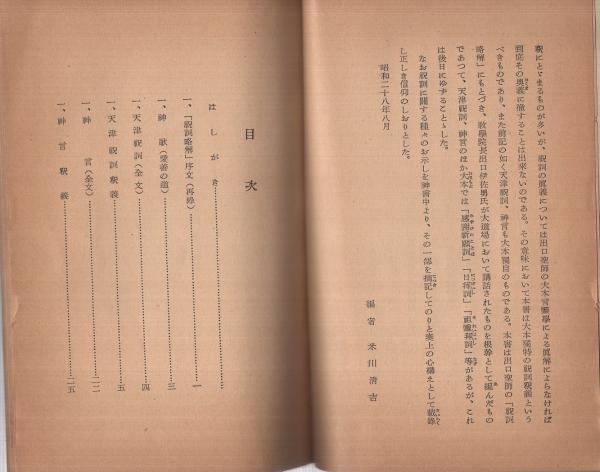 釈にとゞまるものが多いが、祝詞の眞義については出口聖師の大本言霊學による眞解によらなければ
到底その奥義に徹することは出来ないのである。その意味において本書は大本獨特の祝詞釋義という
べきものであり、また前記の如く天津祝詞、神言も大本獨自のものである。本書は出口聖師の「祝詞
略解」にもとづき、教學院長出口伊佐男氏が大道場において講話されたものを根幹として編んだもの
であつて、天津祝詞、神言のほか大本では「感謝祈願詞」「日拜詞」「祖靈拜詞」等があるが、これ
は後日にゆずることゝした。
なお祝詞に關する種々のお示しを神書中より、その一部を摘記してのりと奏上の心構えとして載録
し正しき信仰のしおりとした。
昭和二十八年八月
編者 米川清吉
目次
はしがき
一、「祝詞略解」序文(再錄)…一
一、神歌(愛善の道)…三
一、天津祝詞(全文)…四
一、天津祝詞釋義…五
一、神言(全文)…二二
一、神言釋義…二五